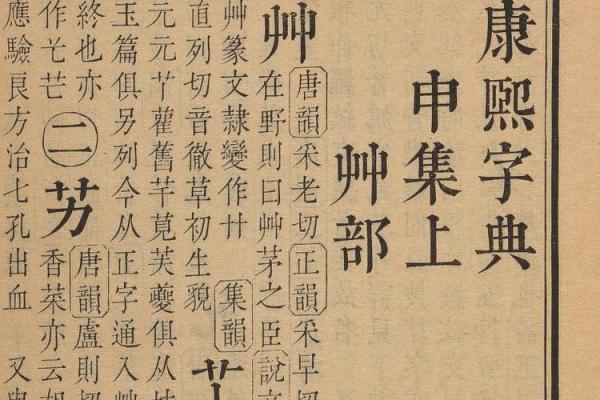 康熙字典
申集上
艸部
艸
唐韻采老切正韻采早切
在野則曰艸茅之臣說文
艸篆文隷變作廾集韻
直列切音徹草初生貌
元元丫雚舊芊莧芙夔俱从
玉篇俱另列今从正字通入艸
終也亦
作芒
二
艻
唐韻盧則切
香菜亦云胡
應驗良方治七孔出血 又與